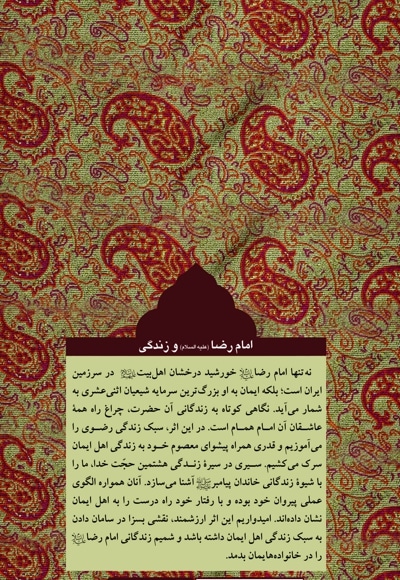 امام رضا (علیه السلام) و زندگی
نه تنها امام رضا خورشید درخشان اهل‌بیت در سرزمین
ایران است؛ بلکه ایمان به او بزرگ‌ترین سرمایه شیعیان اثنی‌عشری به
شمار می‌آید. نگاهی کوتاه به زندگانی آن حضرت، چراغ راه همهٔ
عاشقان آن امام همام است. در این اثر، سبک زندگی رضوی را
می‌آموزیم و قدری همراه پیشوای معصوم خود به زندگی اهل ایمان
سرک می‌کشیم. سیری در سیرهٔ زندگی هشتمین حجّت خدا، ما را
با شیوهٔ زندگانی خاندان پیامبر آشنا می‌سازد. آنان همواره الگوی
عملی پیروان خود بوده و با رفتار خود راه درست را به اهل ایمان
نشان داده‌اند. امیدواریم این اثر ارزشمند، نقشی بسزا در سامان دادن
به سبک زندگی اهل ایمان داشته باشد و شمیم زندگانی امام رضا
را در خانواده‌هایمان بدمد.